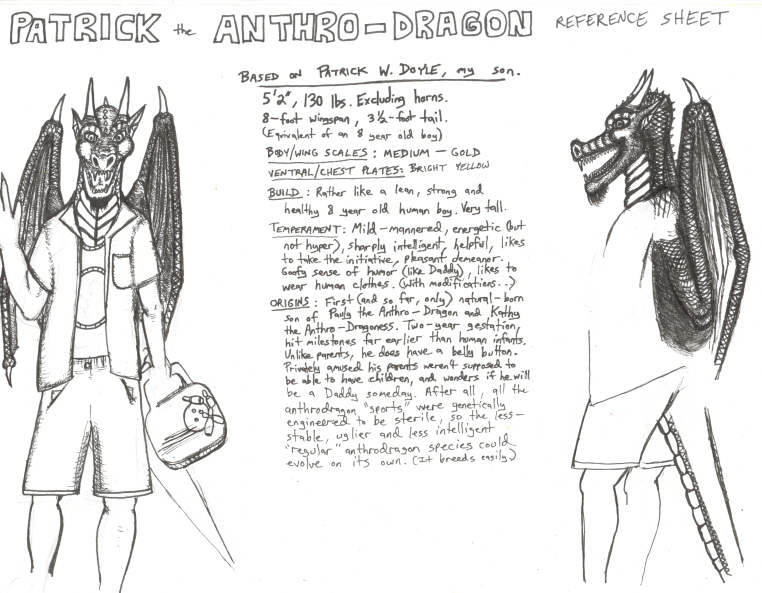 PATRICK the ANTHRO-DRAGON REFERENCE SHEET
BASED ON PATRICK W. DOYLE, my son.
5'2", 130 lbs. Excluding horns.
8-foot wingspan, 3 1/2-foot tail.
(Equivalent of an 8 year old boy)
BODY/WING SCALES: MEDIUM-GOLD
VENTRAL/CHEST PLATES: BRIGHT YELLOW
BUILD: Rather like a lean, strong and
healthy 8 year old human boy. Very tall.
TEMPERAMENT: Mild-mannered, energetic (but
not hyper), sharply intelligent, helpful, likes
to take the initiative, pleasant demeanor.
Goofy sense of humor (like Daddy), likes to
wear human clothes. (with modifications..)
ORIGINS: First (and so far, only) natural-born
son of Pauly the Anthro-Dragon and Kathy
the Anthro-Dragoness. Two-year gestation,
hit milestones far earlier than human infants.
Unlike parents, he does have a belly button.
Privately amused his parents weren't supposed to
be able to have children, and wonders if he will
be a Daddy someday. After all, all the
anthrodragon "sports" were genetically
engineered to be sterile, so the less-
stable, uglier and less intelligent
"regular" anthrodragon species could
evolve on its own. (It breeds easily.)